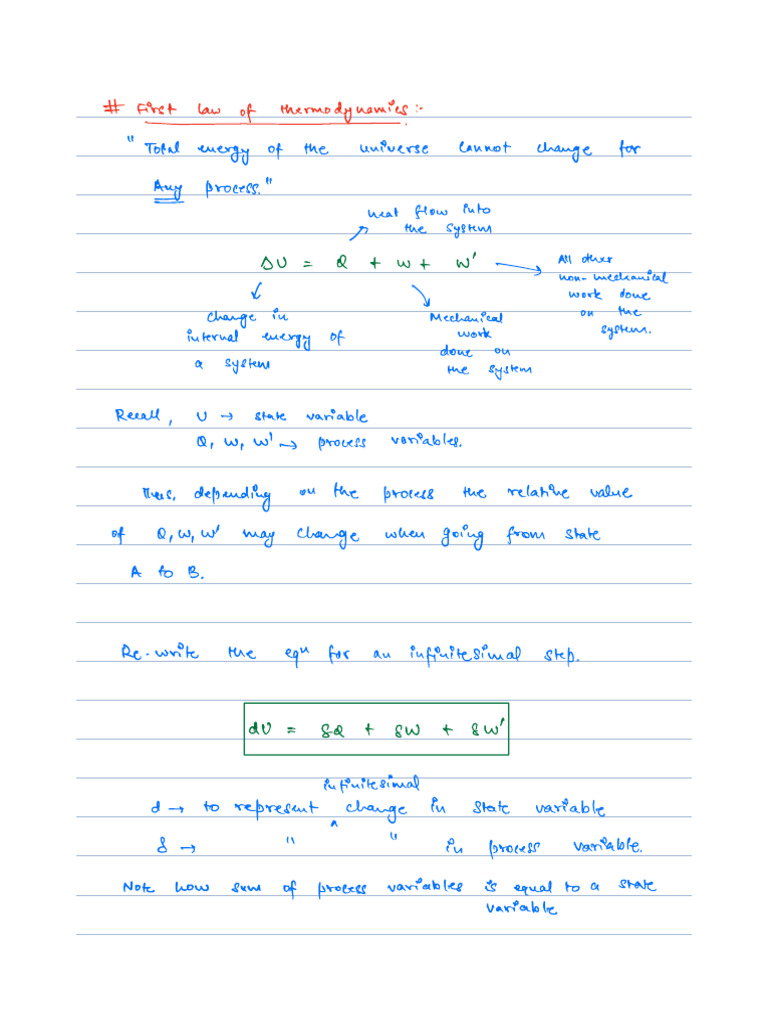 # First law of thermodynamics:-
"Total energy of the universe cannot change for
Any process."
heat flow into
the system
ΔU = Q + W + W'
All other
non-mechanical
work done
on the
system.
Change in
internal energy of
a system
Mechanical
work
done on
the system
Recall, U → state variable
Q, W, W' → process variables.
Thus, depending on the process the relative value
of Q, W, W' may change when going from state
A to B.
Re-write the eqn for an infinitesimal step.
dU = δQ + δW + δW'
infinitesimal
d → to represent ^ change in state variable
δ → " " in process variable.
Note how sum of process variables is equal to a state
variable